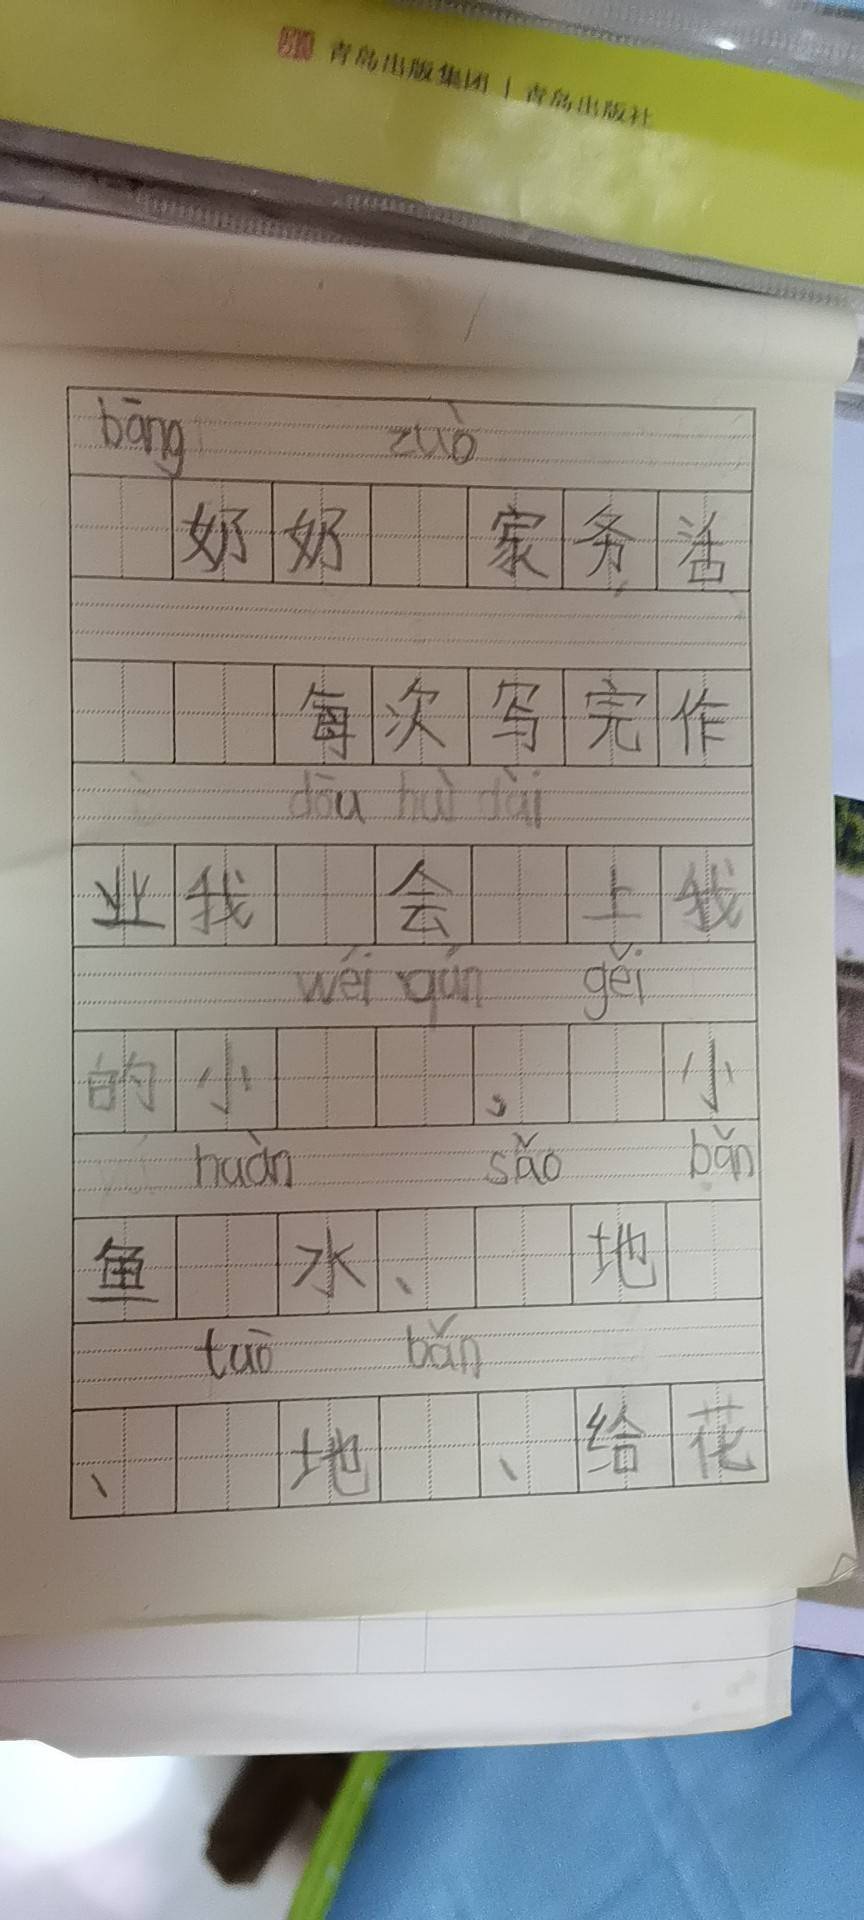 青岛出版集团 | 青岛出版社
bāng zuò
奶奶 家务活
每次写完作
dōu huì dài
业我 会 上我
wéi qún gěi
的小 , 小
huàn sǎo bǎn
鱼 水、 地
tuō bǎn
、 地 、给花